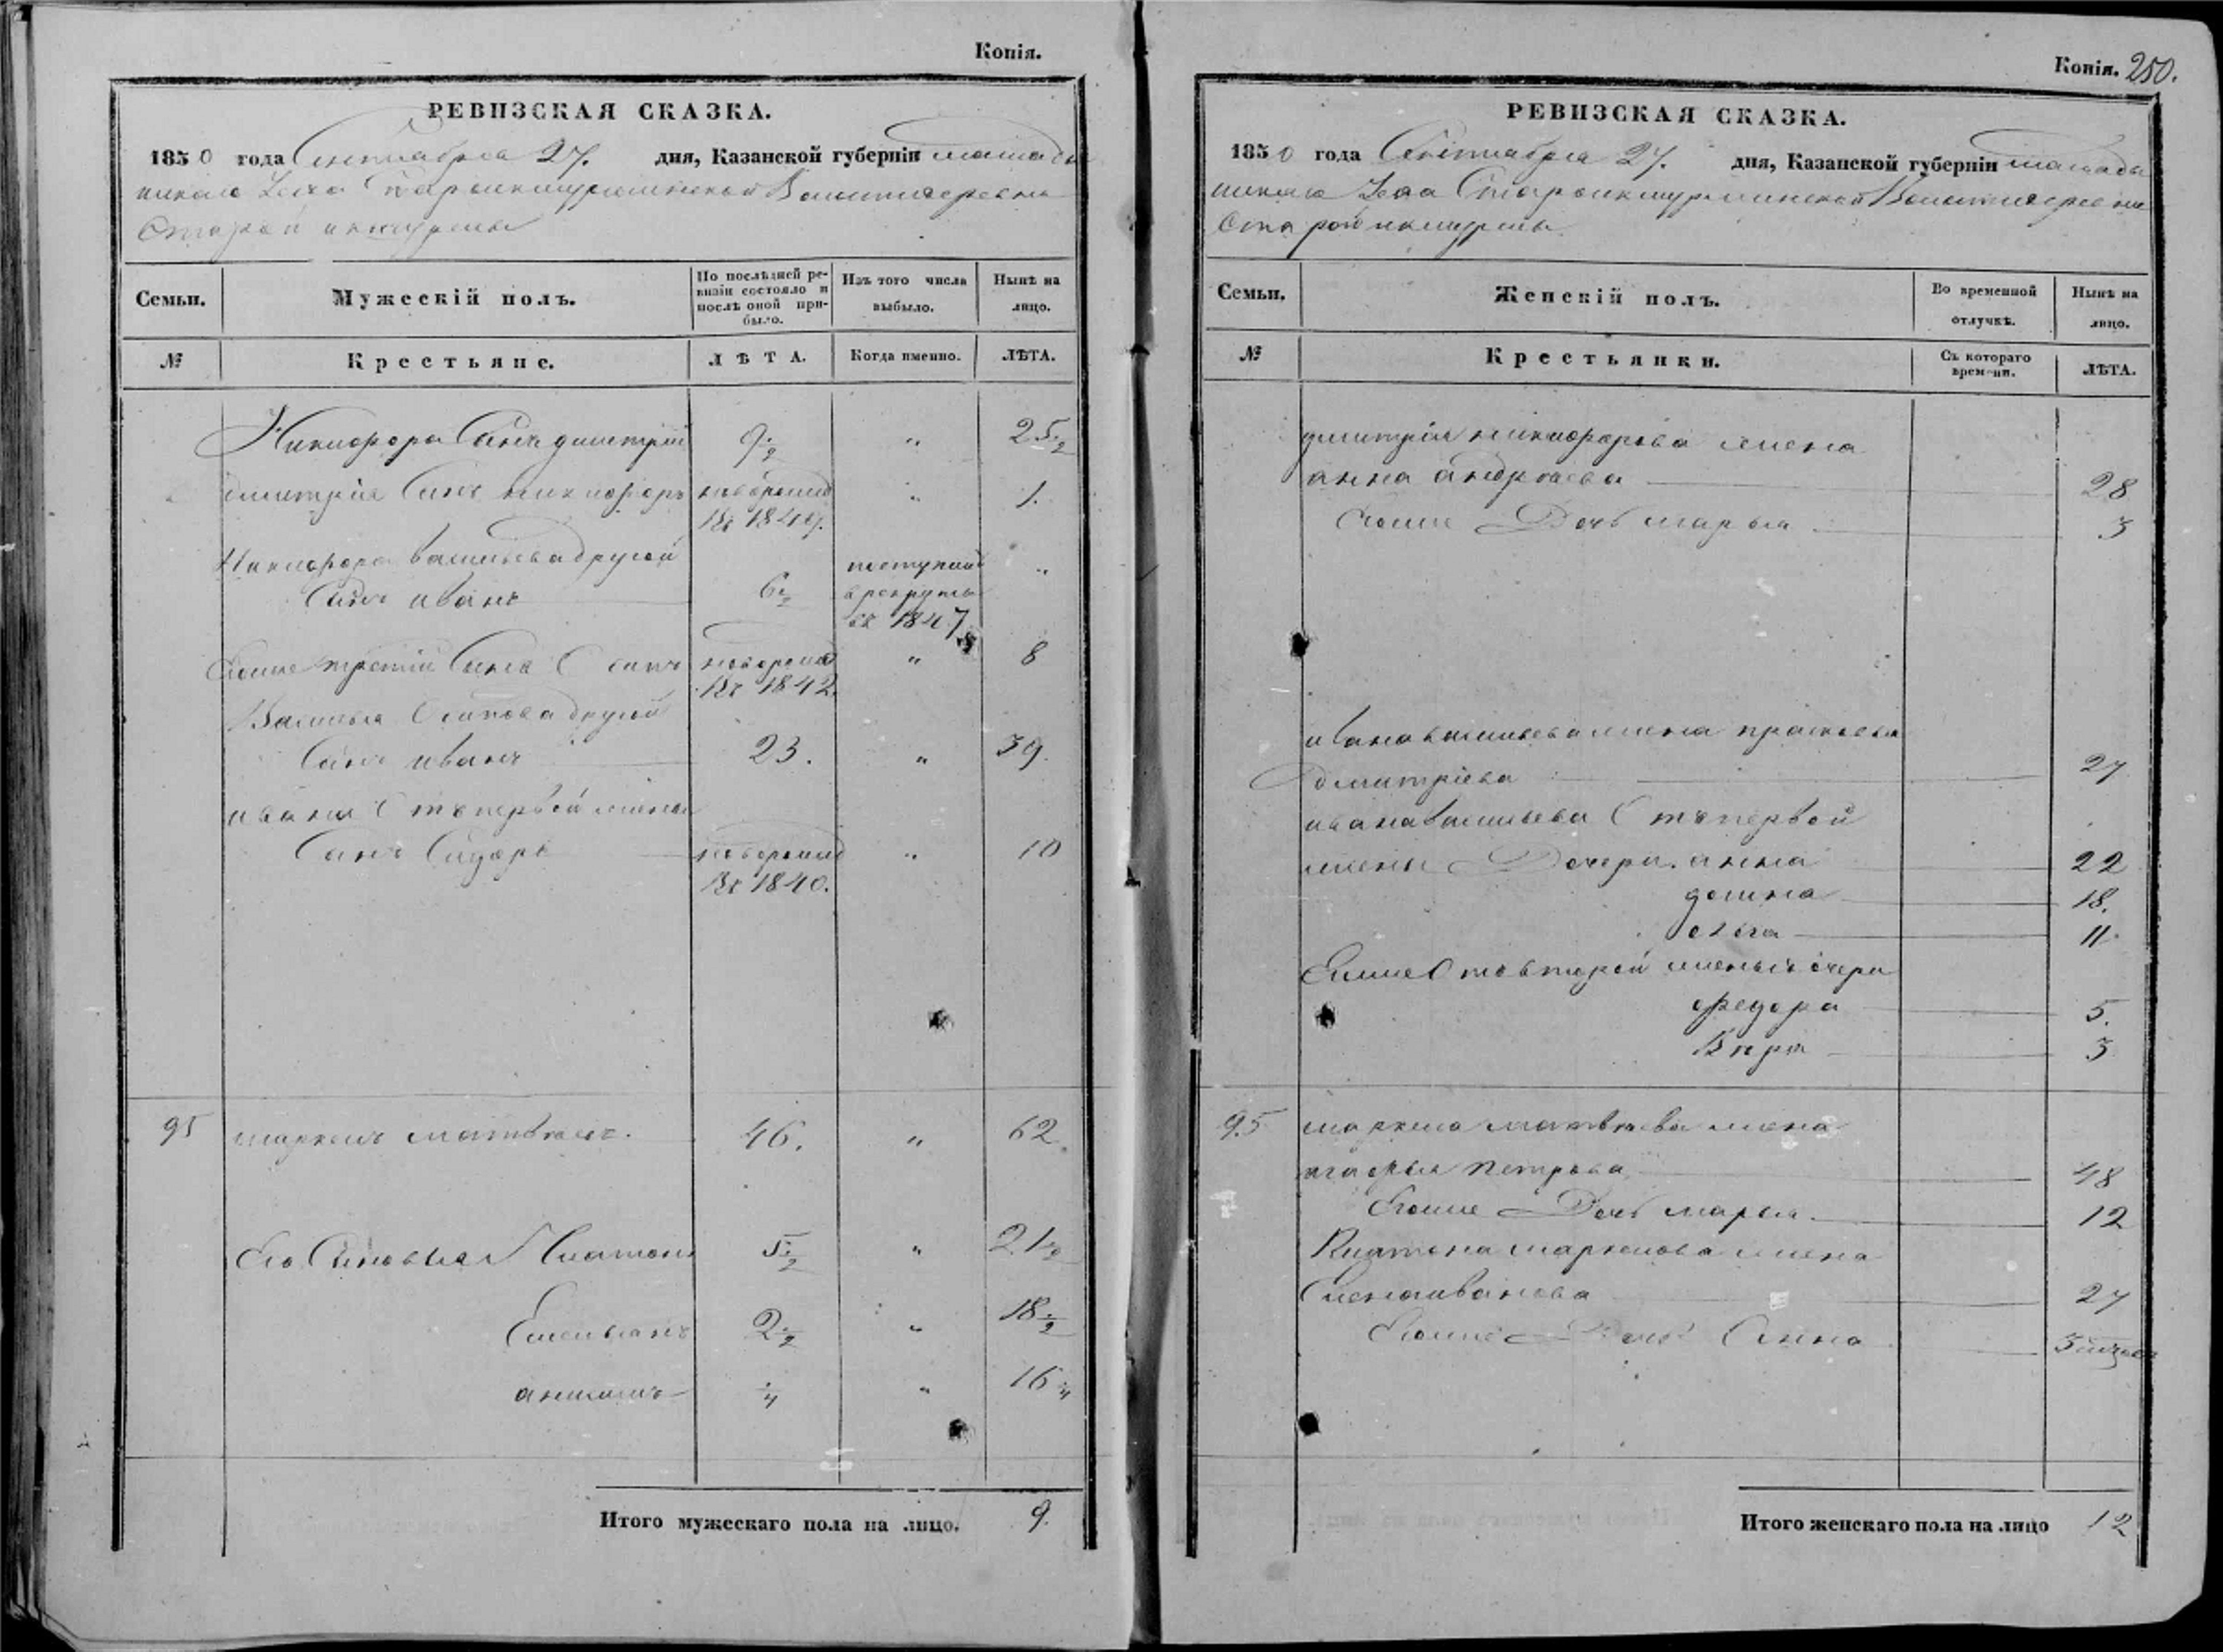 Копія.
РЕВИЗСКАЯ СКАЗКА.
1850 года Сентября 27. дня, Казанской губерніи мамады
Старой икшурмы
Семьи.
Мужескій полъ.
По послѣдней ре-
визіи состояло и
послѣ оной при-
было.
Изъ того числа
выбыло.
Нынѣ на
лицо.
№
Крестьяне.
ЛѢТА.
Когда именно.
ЛѢТА.
Никифора Сынъ дмитрій 9½ " 25½
дмитрія Сынъ никифоръ новорожд " 1.
Въ 1849.
Никифора васильева другой поступилъ "
Сынъ иванъ 6½ в рекруты
въ 1847
Егоже третій Сынъ Осипъ новорожд " 8
Въ 1842.
Василья Осипова другой
Сынъ иванъ 23. " 39.
ивана Отъ первой жены
Сынъ Сидоръ новорожд " 10
Въ 1840.
95 маркелъ матвѣевъ. 46. " 62.
Его Сыновья Платонъ 5½ " 21½
Емельянъ 2½ " 18½
¼ " 16¼
Итого мужескаго пола на лицо. 9.
Копія. 250.
РЕВИЗСКАЯ СКАЗКА.
1850 года Сентября 27. дня, Казанской губерніи мамады
Старой икшурмы
Семьи.
Женскій полъ.
Во временной
отлучкѣ.
Нынѣ на
лицо.
№
Крестьянки.
Съ котораго
времени.
ЛѢТА.
дмитрія никифорова жена
анна андрѣева 28
Егоже Дочь марья 3
ивана васильева жена прасковья
Дмитріева 27
ивана васильева Отъ первой
жены Дочери. анна 22
домна 18.
11.
Егоже Отъ второй жены дочери
федора 5.
Вѣра 3
95 маркела матвѣева жена
петрова 48
Егоже Дочь марья 12
Платона маркелова жена
Елена иванова 27
Егоже Дочь Анна
Итого женскаго пола на лицо 12